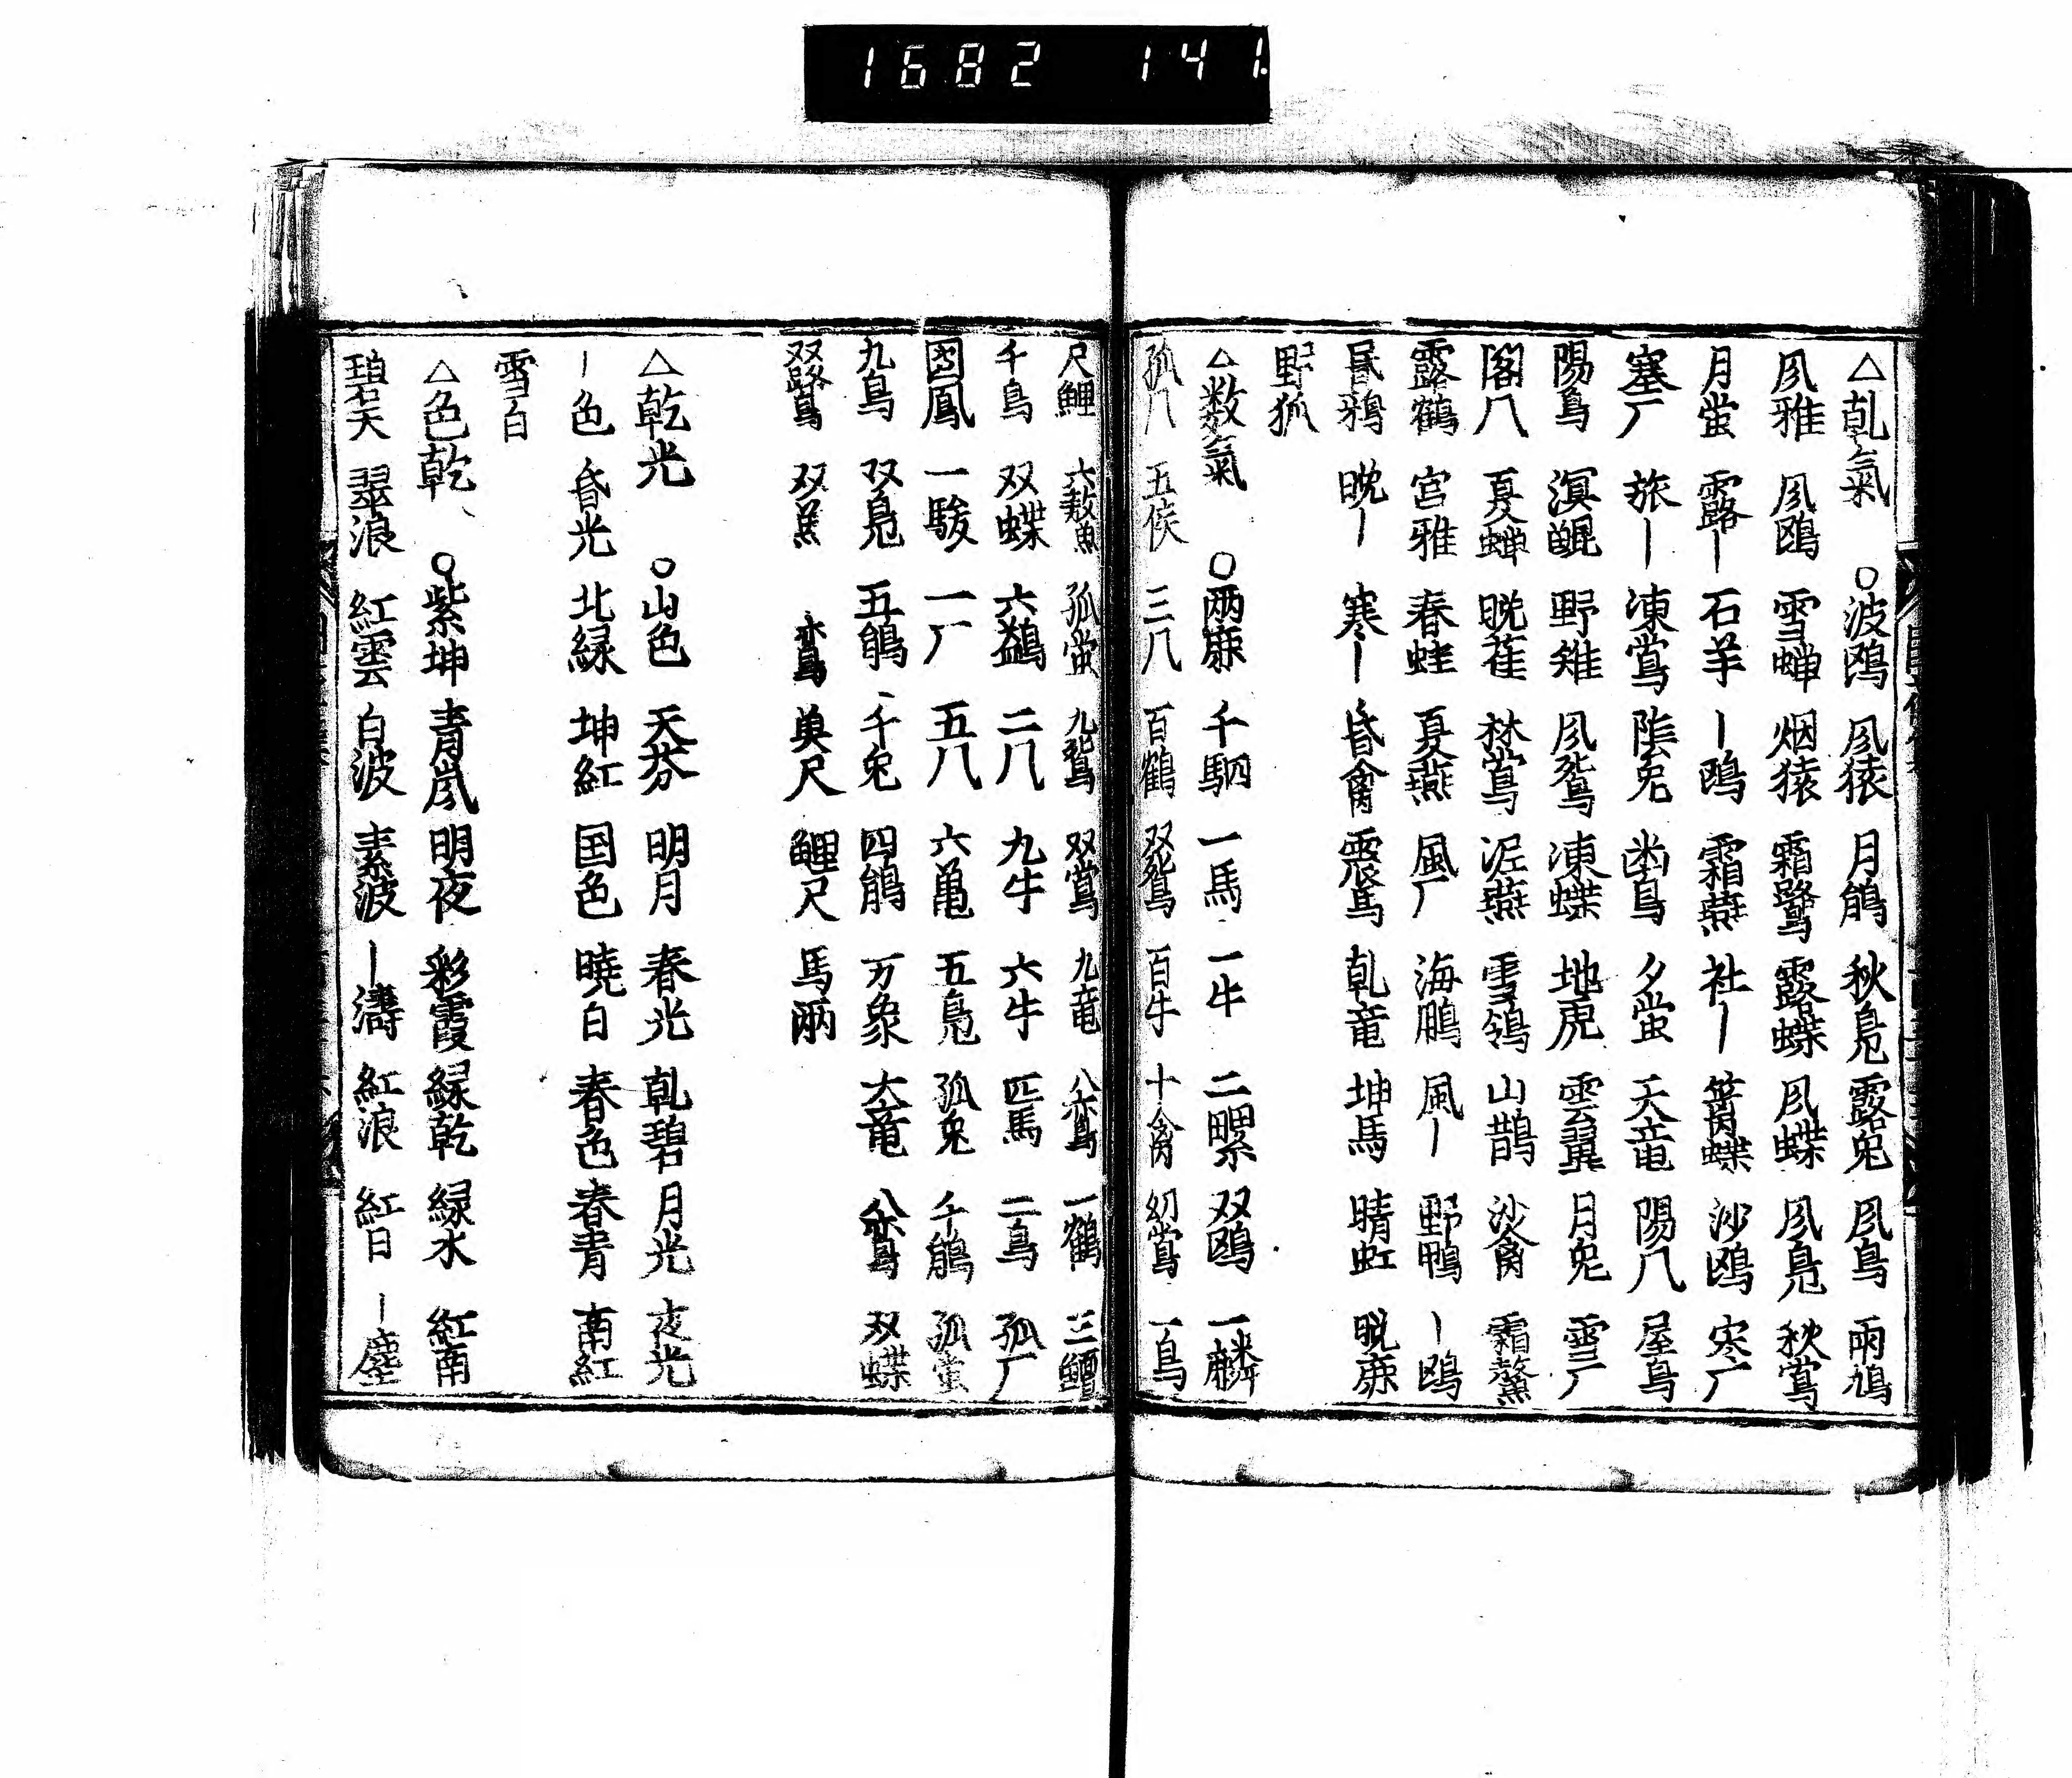 1682 141.
△乹氣 ○波鴎 凨猿 月鵑 秋凫 露兎 凨鳥 雨鳩
凨雅 凨鴎 雪蝉 烟猿 霜鷺 露蝶 凨蝶 凨凫 秋鴬
月蛍 露〡 石羊 〡鴎 霜燕 社〡 蝶 沙鴎 寒厂
塞厂 旅〡 凍鴬 陰兎 幽鳥 夕蛍 天竜 陽八 屋鳥
陽鳥 溟鯤 野雉 凨鴛 凍蝶 地虎 雲翼 月兎 雪厂
閣八 夏蝉 晩雀 林鴬 泥燕 雪鴒 山鵲 沙禽 霜鰲
露鶴 宮雅 春蛙 夏燕 風厂 海鵬 風〡 野鴨 〡鴎
昏鴉 晩〡 寒〡 昏禽 震馬 乹竜 坤馬 晴虹 晩鹿
野狐
△数氣 ○両鹿 千駟 一馬 一牛 二騾 双鴎 一麟
孤八 五侯 三八 百鶴 双鴛 百牛 十禽 幼鴬 一鳥
尺鯉 六鰲 孤蛍 九鴛 双鴬 九竜 八鸞 一鶴 三鱣
千鳥 双蝶 六鷁 二八 九牛 六牛 匹馬 二鳥 孤厂
鳳 一駿 一厂 五八 六亀 五凫 孤兎 千鵑 孤蛍
九鳥 双凫 五鵑 千兎 四鵑 万象 大竜 八鸞 双蝶
双鷺 双羔 鸞 奠尺 鯉尺 馬両
△乾光 ○山色 天芬 明月 春光 乹碧 月光 夜光
〡色 昏光 北緑 坤紅 国色 暁白 春色 春青 南紅
雪白
△色乾 ○紫坤 青嵐 明夜 彩霞 緑乾 緑水 紅南
碧天 翠浪 紅雲 白波 素波 〡濤 紅浪 紅日 〡塵